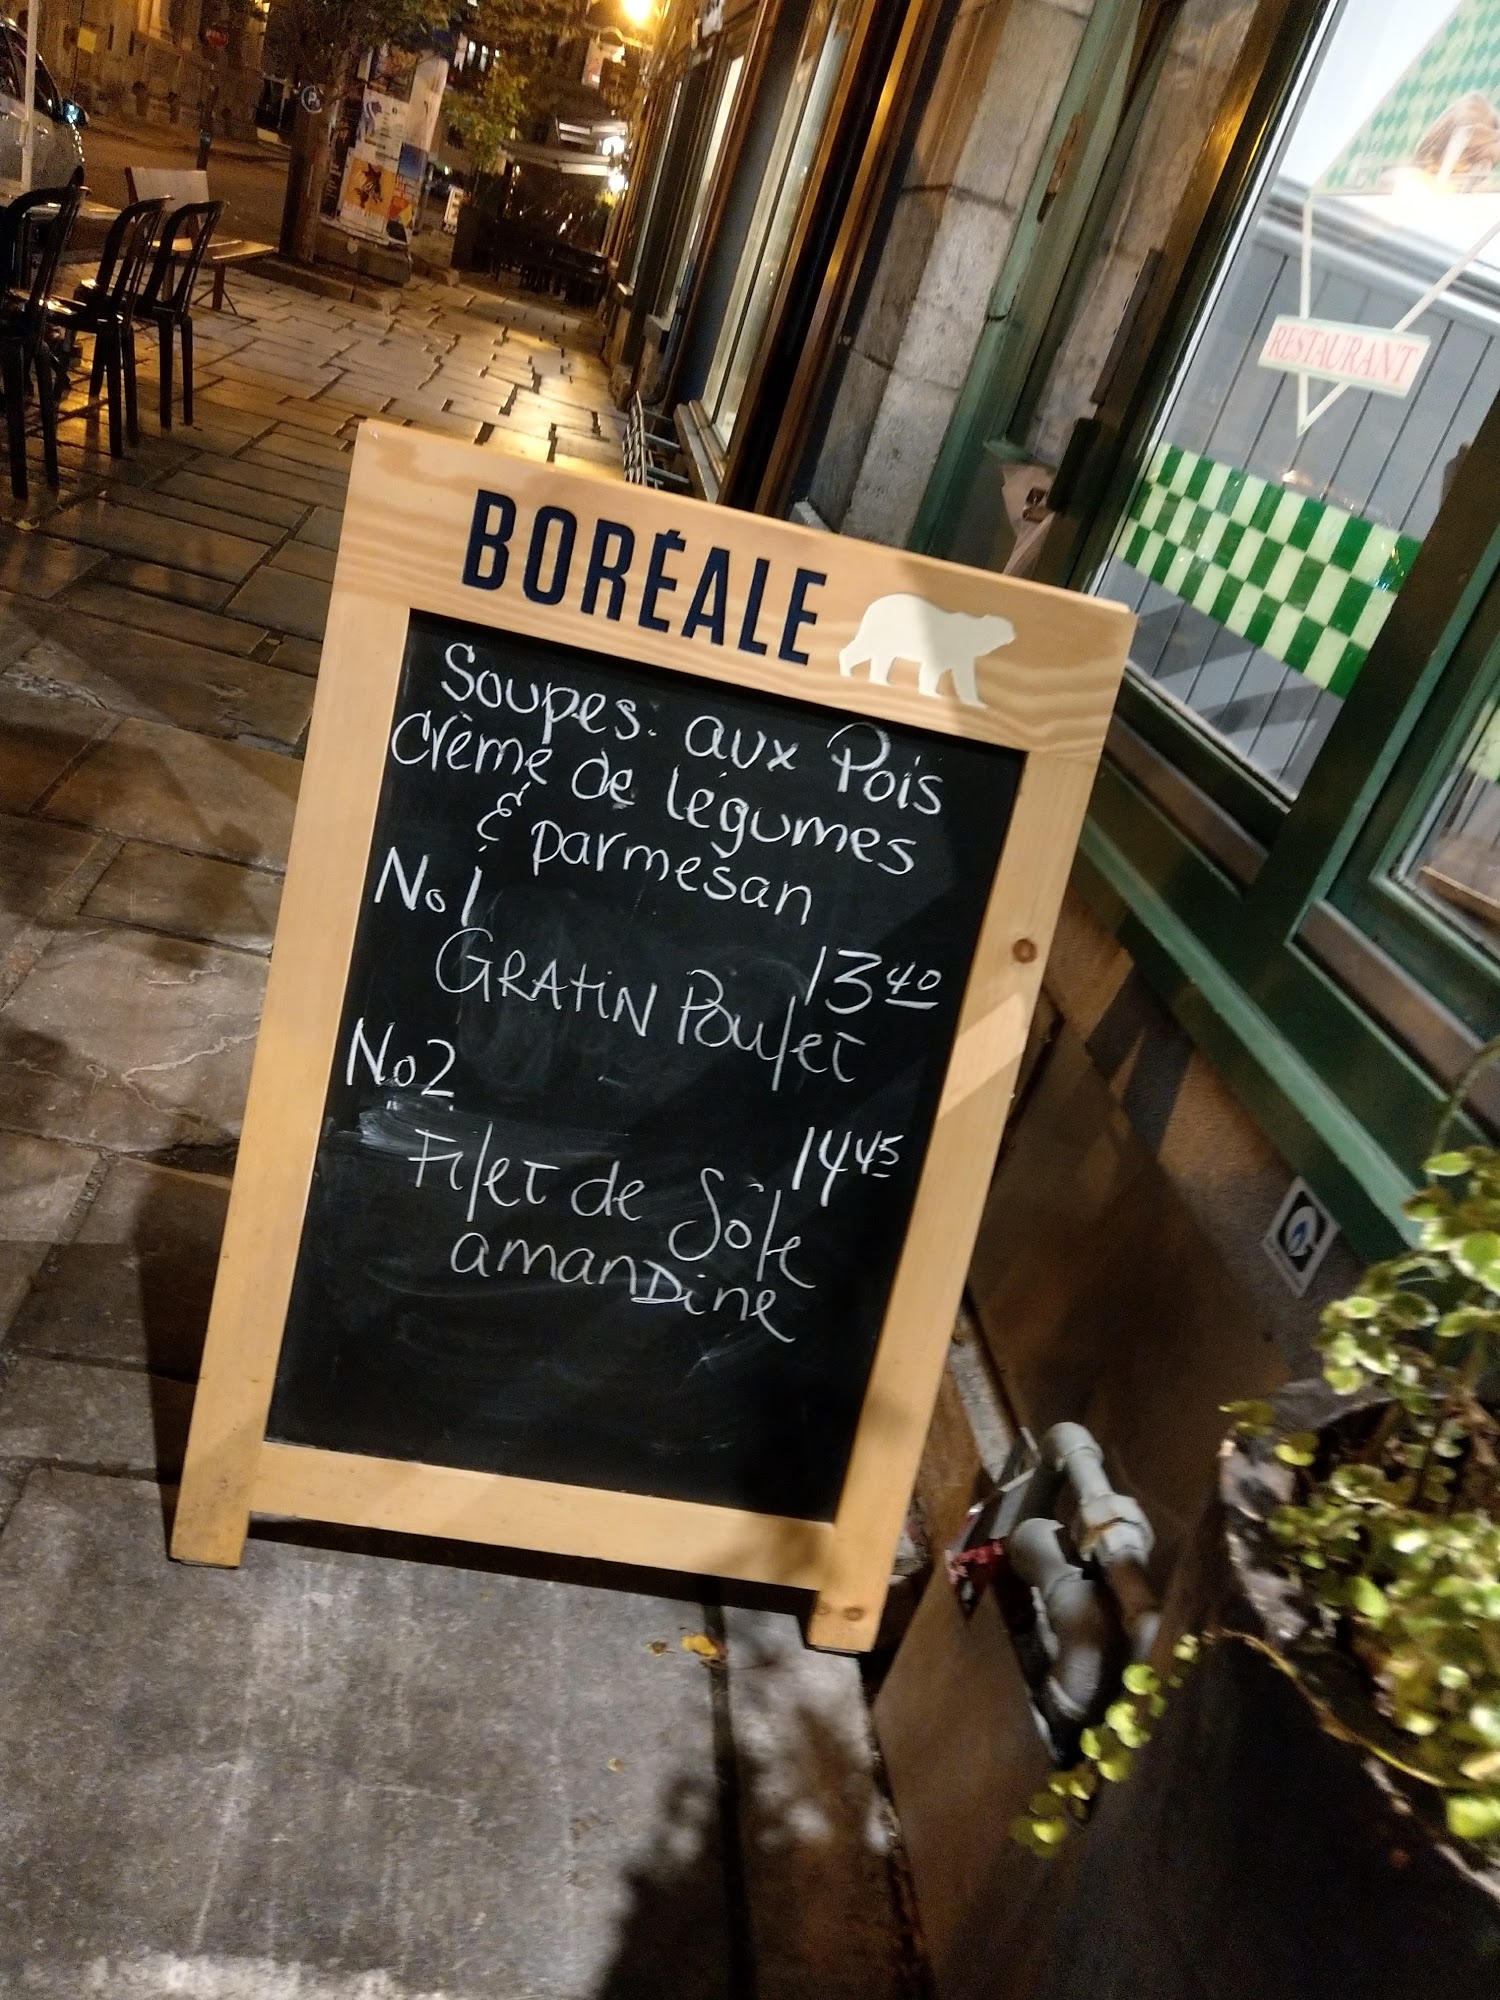 BORÉALE
Soupes. aux Pois
Crème de légumes
& parmesan
No 1
13 40
GRATIN Poulet
No 2
14 45
Filet de Sole
amanDine
RESTAURANT